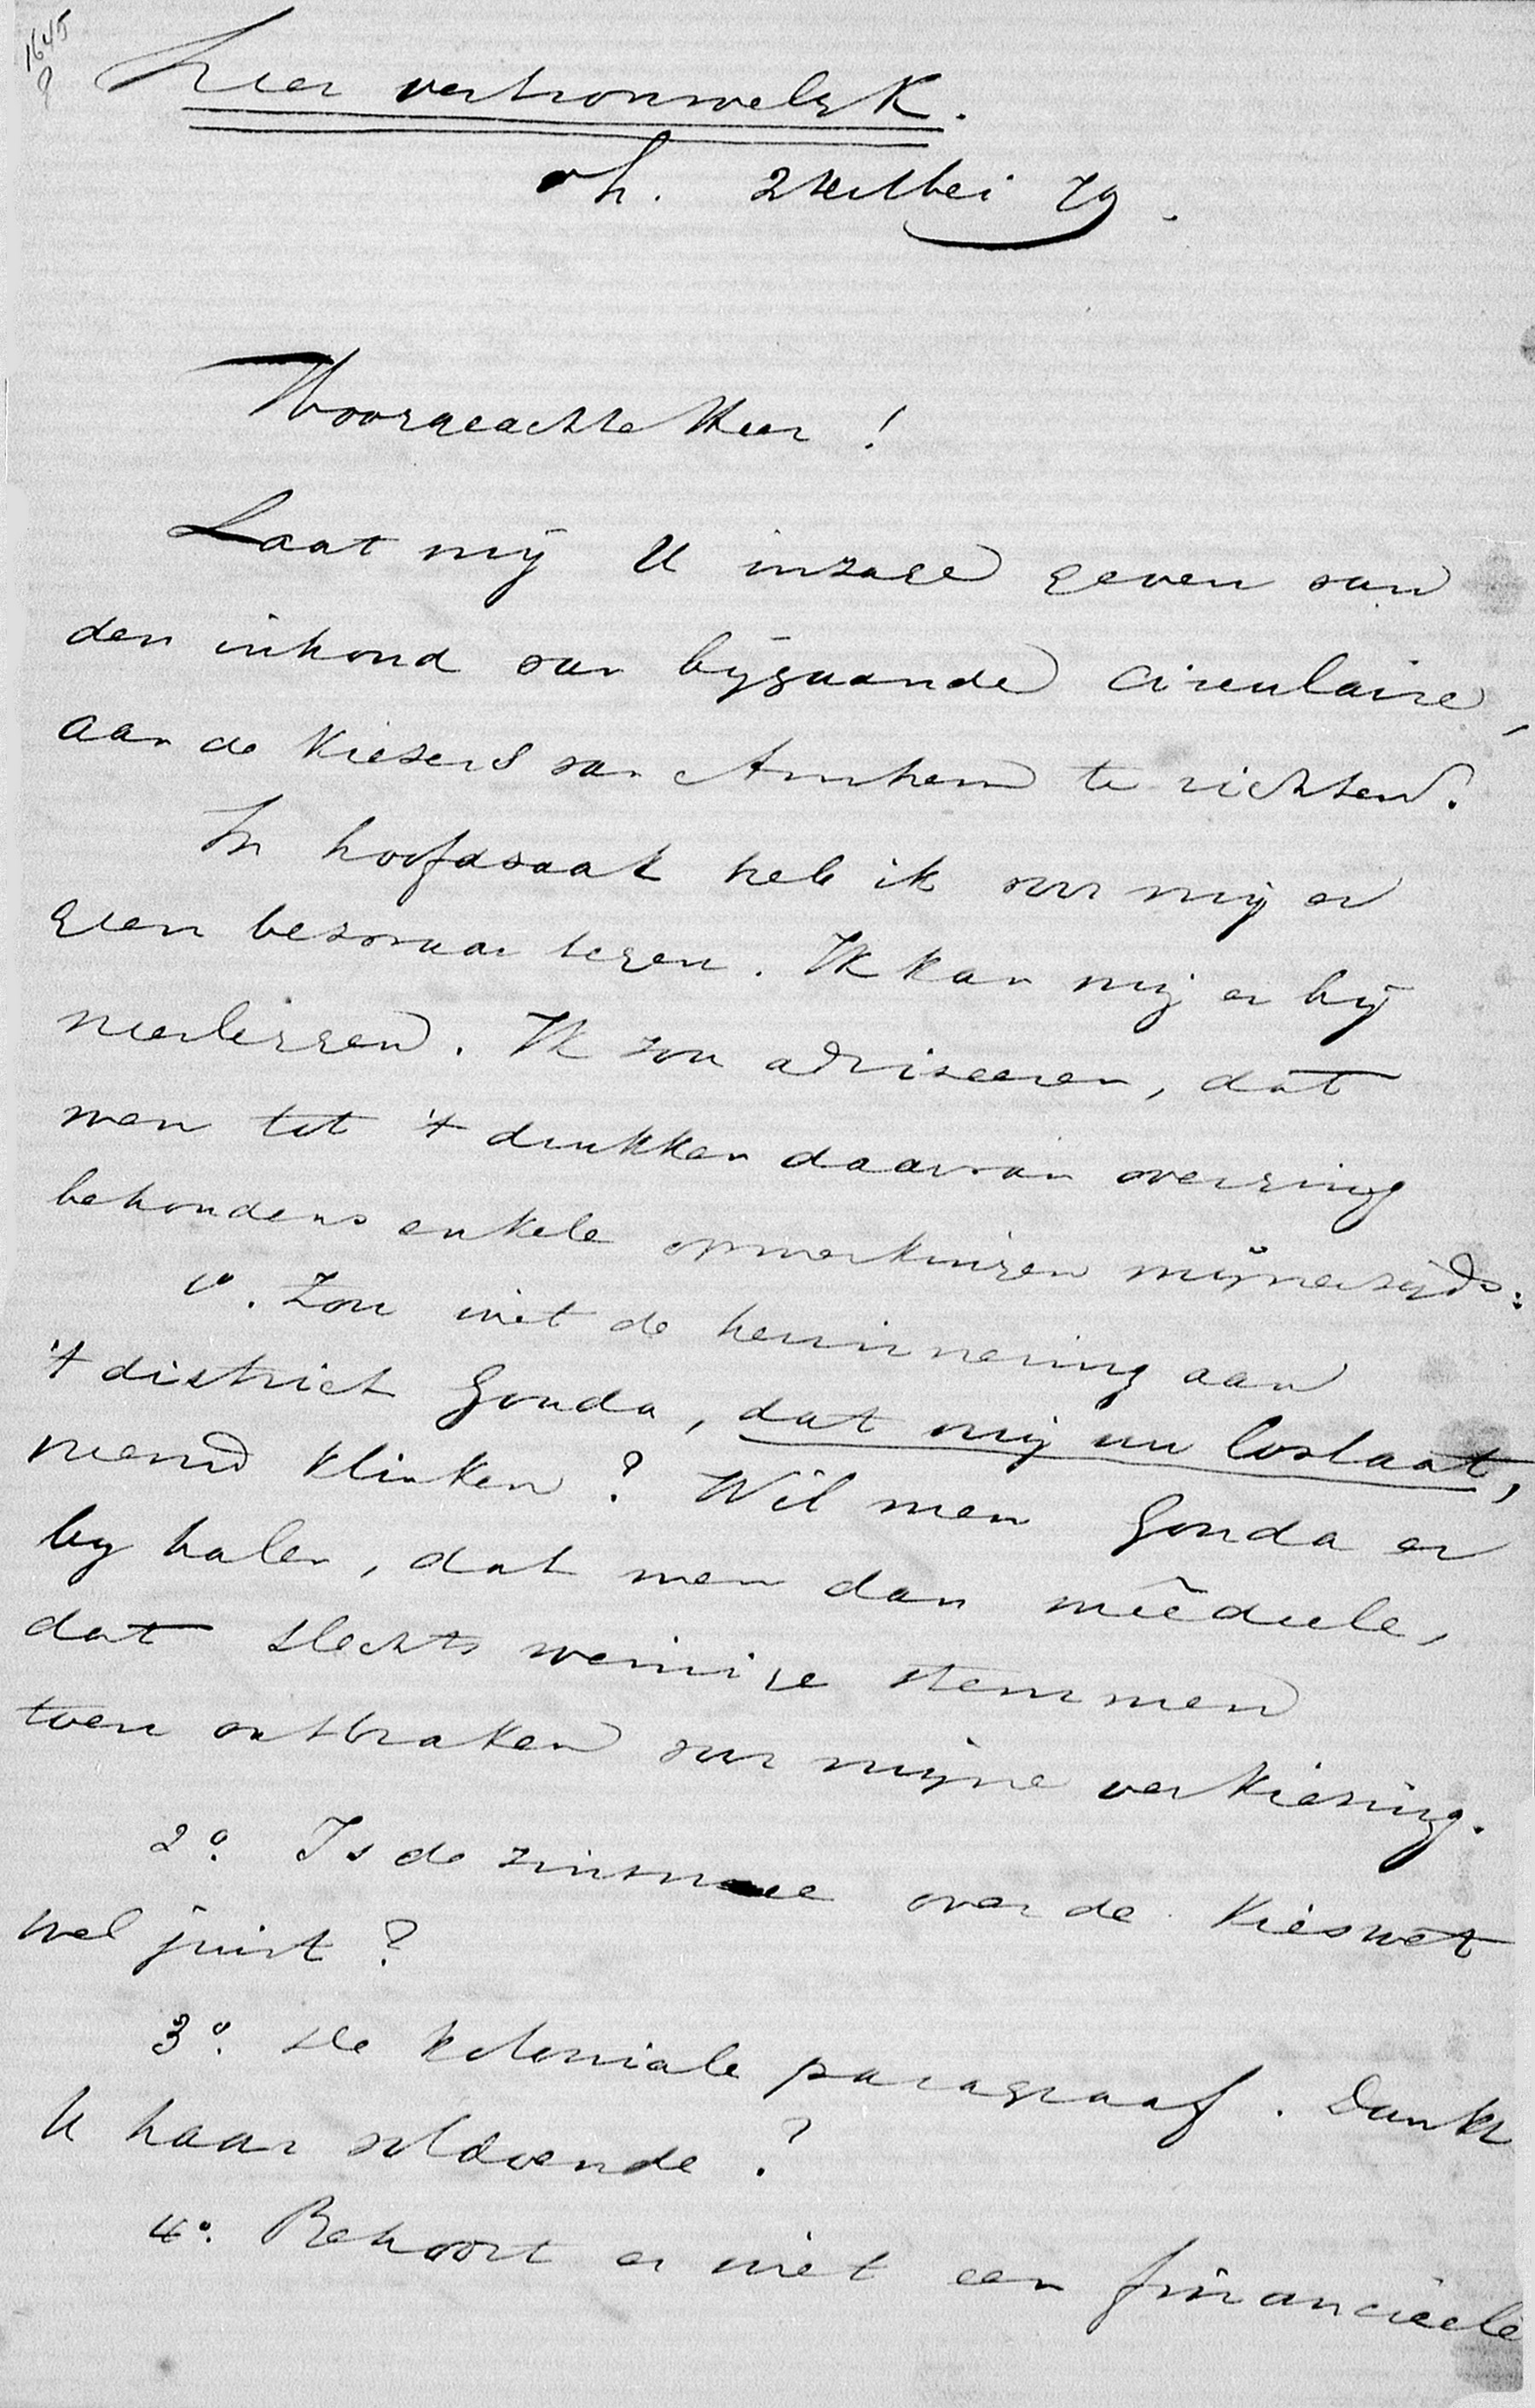 1645
Zeer vertrouwelijk.
A. 2 Mei 79.
Hooggeachte Heer!
Laat mij U inzage geven van
den inhoud van bijgaande circulaire,
aan de kiezers van Arnhem te richten.
In hoofdzaak heb ik voor mij er
geen bezwaar tegen. Ik kan mij er bij
neerleggen. Ik zou adviseeren, dat
men tot 't drukken daarvan overging
behoudens enkele opmerkingen mijnerzijds:
1o. Zou niet de herinnering aan
't district Gouda, dat mij nu loslaat,
vreemd klinken? Wil men Gouda er
bij halen, dat men dan meêdeele,
dat slechts weinige stemmen
toen ontbraken voor mijne verkiezing.
2o. Is de zinsnee over de Kieswet
wel juist?
3o. De koloniale paragraaf. Dunkt
U haar voldoende?
4o. Behoort er niet een financieele